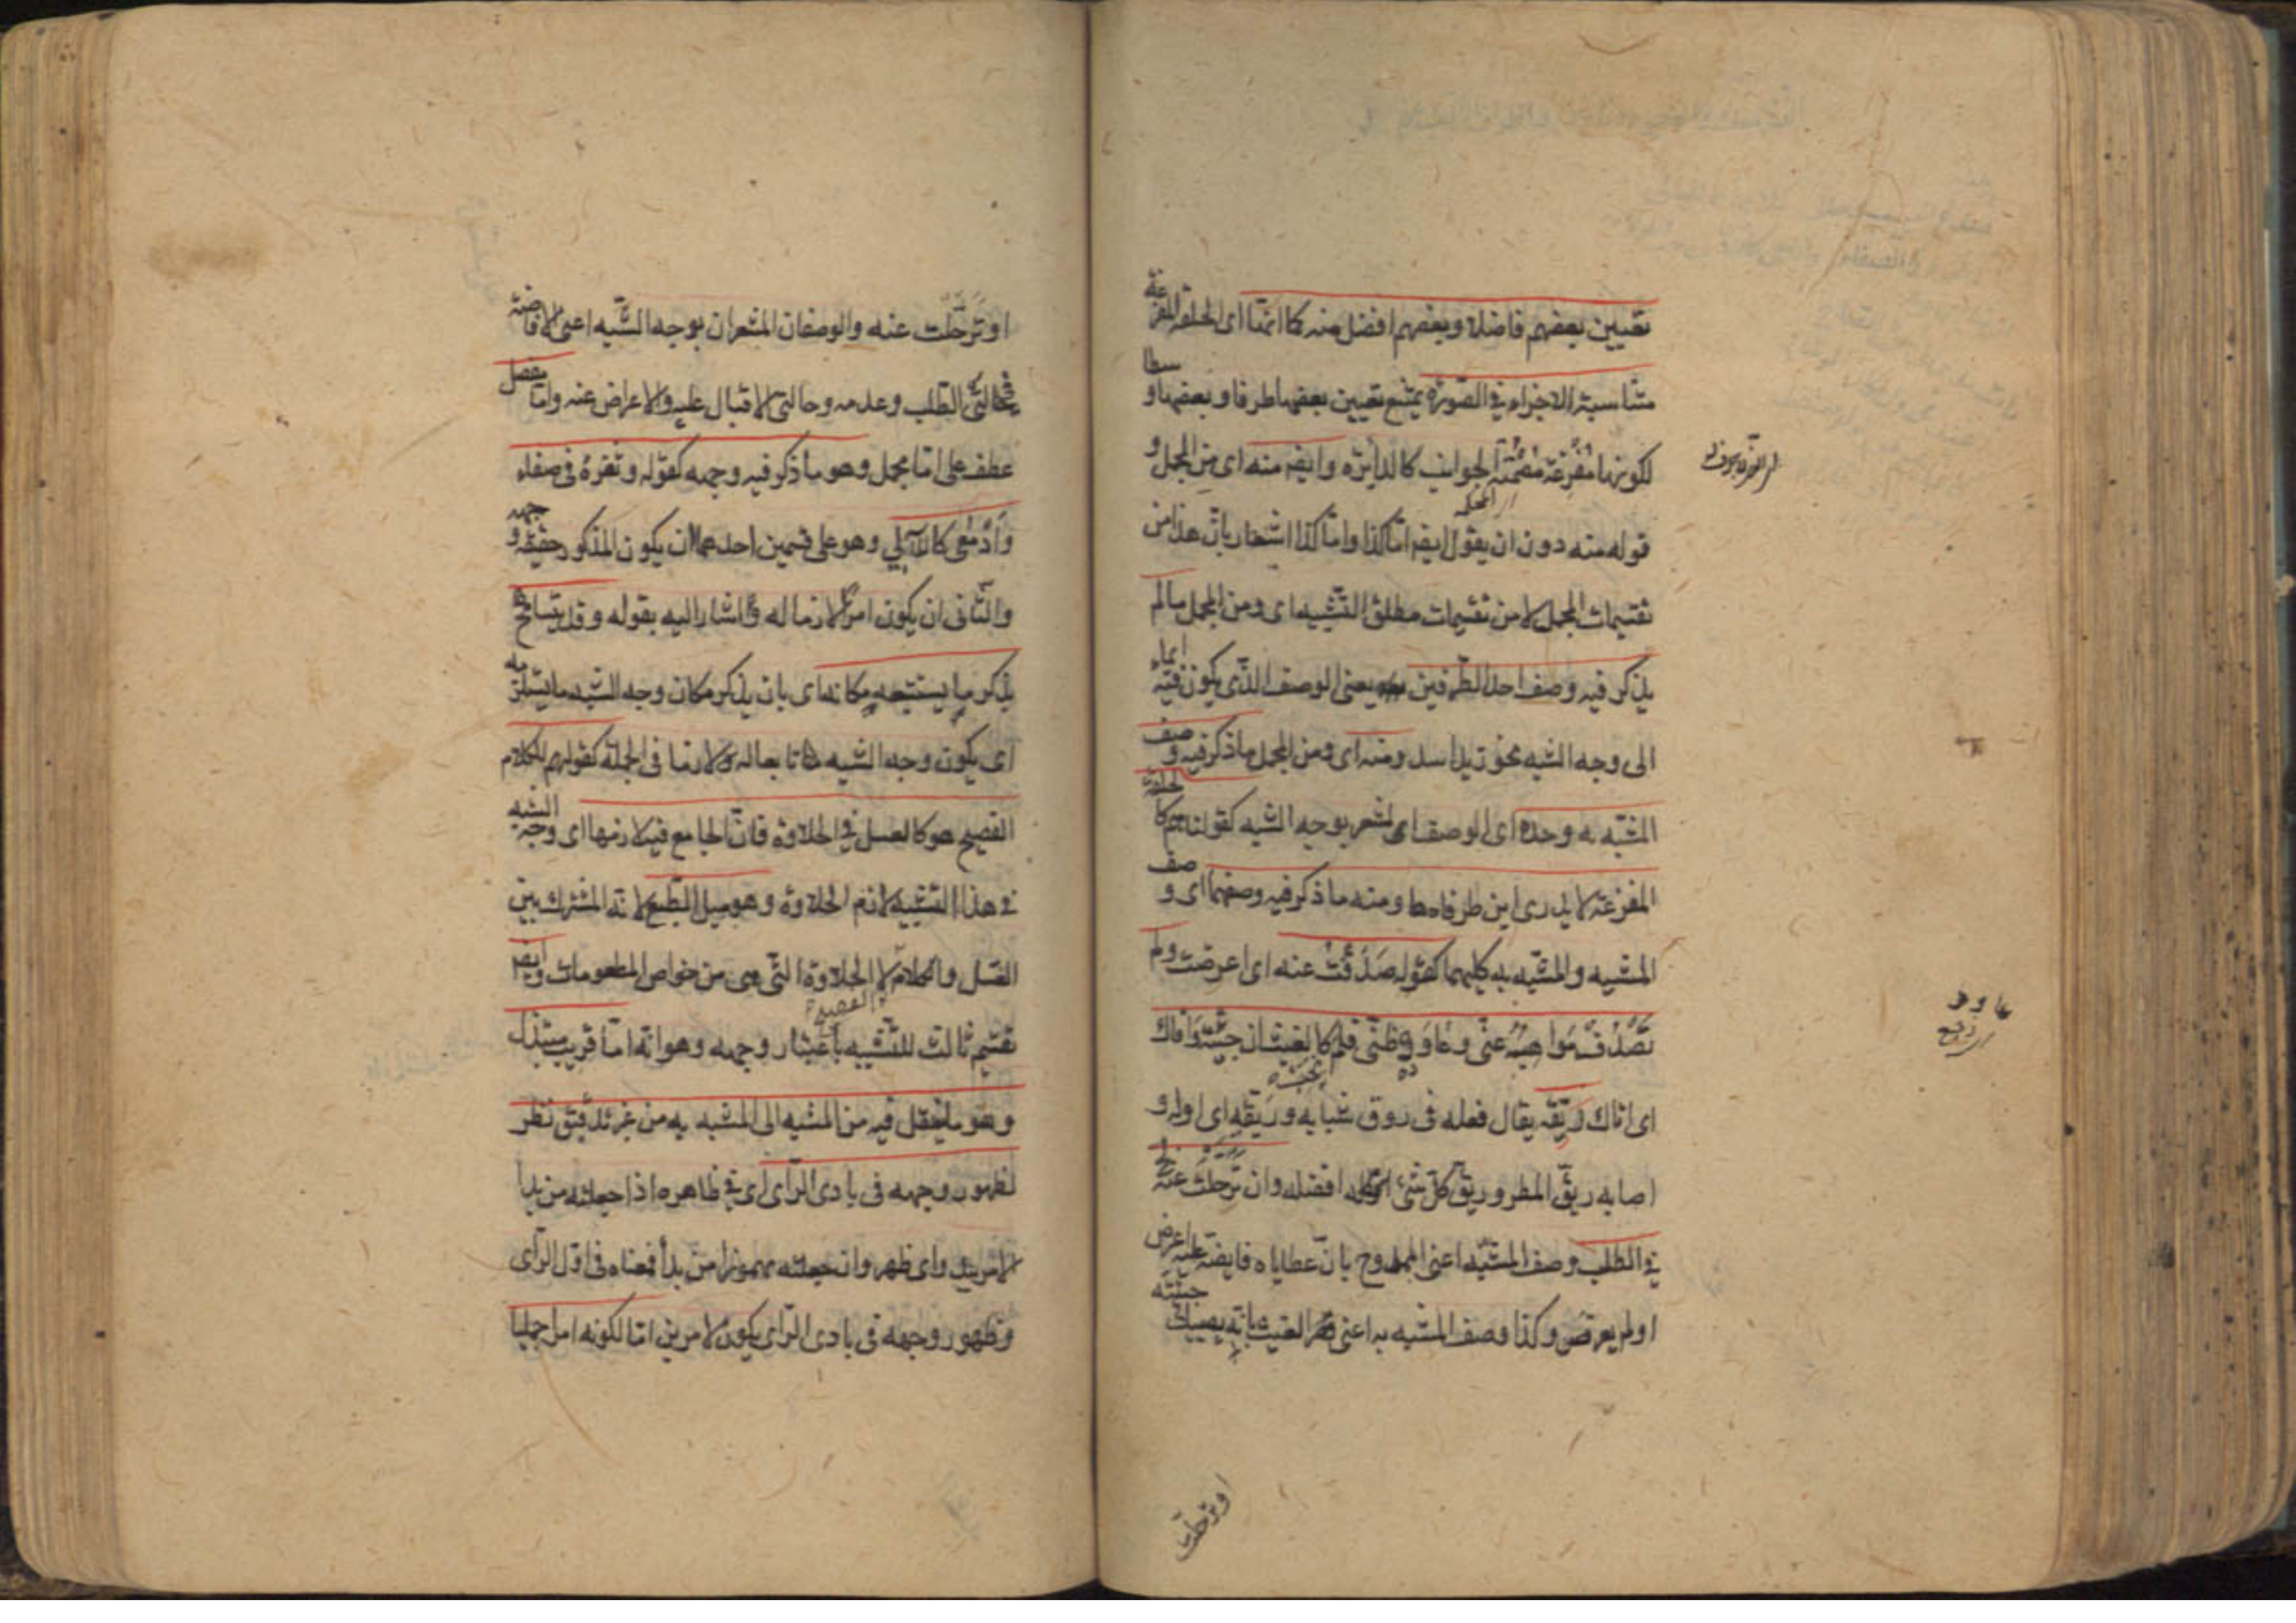 تعيين بعضهم فاضلا وبعضهم افضل منه كما انها اى الحلقة المفرغة
متناسبة الاجزاء فى الصورة يمتنع تعيين بعضها طرفا وبعضها وسطا
لكونها مفرغة مصمتة الجوانب كالدائرة وايضا منه اى من المجمل و
قوله منه دون ان يقول ايضا اما كذا واما كذا اشعار بان هذا من
تقسيمات المجمل لا من تقسيمات مطلق التشبيه اى ومن المجمل مالم
يذكر فيه وصف احد الطرفين يعنى الوصف الذى يكون فيه ايماء
الى وجه الشبه نحو زيد اسد ومنه اى ومن المجمل ما ذكر فيه وصف
المشبه به وحده اى الوصف المشعر بوجه الشبه كقولنا هم كالحلقة
المفرغة لا يدرى اين طرفاها ومنه ما ذكر فيه وصفهما اى وصف
المشبه والمشبه به كليهما كقوله صدفت عنه اى اعرضت ولم
تصدف مواهبه عنى وعاوده ظنى فلم يخب كالغيث ان جئته وافاك
اى اتاك ريقه يقال فعله فى روق شبابه وريقه اى اوله و
اصابه ريق المطر وريق كل شئ افضله وان ترحلت عنه لج
فى الطلب وصف المشبه اعنى الممدوح بان عطاياه فايضة عليه اعرض
او لم يعرض وكذا وصف المشبه به اعنى الغيث بانه يصيبك جئته
او ترحلت
او ترحلت عنه والوصفان المشعران بوجه الشبه اعنى الافاضة
فى حالتى الطلب وعدمه وحالتى الاقبال عليه والاعراض عنه واما مفصل
عطف على اما مجمل وهو ما ذكر فيه وجهه كقوله وثغره فى صفاء
وادمعى كاللآلى وهو على قسمين احدهما ان يكون المذكور حقيقة وجهه
والثانى ان يكون امرا لازما له واشار اليه بقوله وقد يتسامح
بذكر ما يستتبعه مكانه اى بان يذكر مكان وجه الشبه ما يستلزمه
اى يكون وجه الشبه تابعا له لازما فى الجملة كقولهم للكلام
الفصيح هو كالعسل فى الحلاوة فان الجامع فيه لازمها اى وجه الشبه
فى هذا التشبيه لازم الحلاوة وهو ميل الطبع لانه المشترك بين
العسل والكلام الفصيح لا الحلاوة التى هى من خواص المطعومات وايضا
تقسيم ثالث للتشبيه باعتبار وجهه وهو انه اما قريب مبتذل
وهو ما ينتقل فيه من المشبه الى المشبه به من غير تدقيق نظر
لظهور وجهه فى بادى الراى اى فى ظاهره اذا جعلته من بدا
الامر يبدو اى ظهر وان جعلته مهموزا من بدأ فمعناه فى اول الراى
وظهور وجهه فى بادى الراى يكون لامرين اما لكونه امرا جمليا